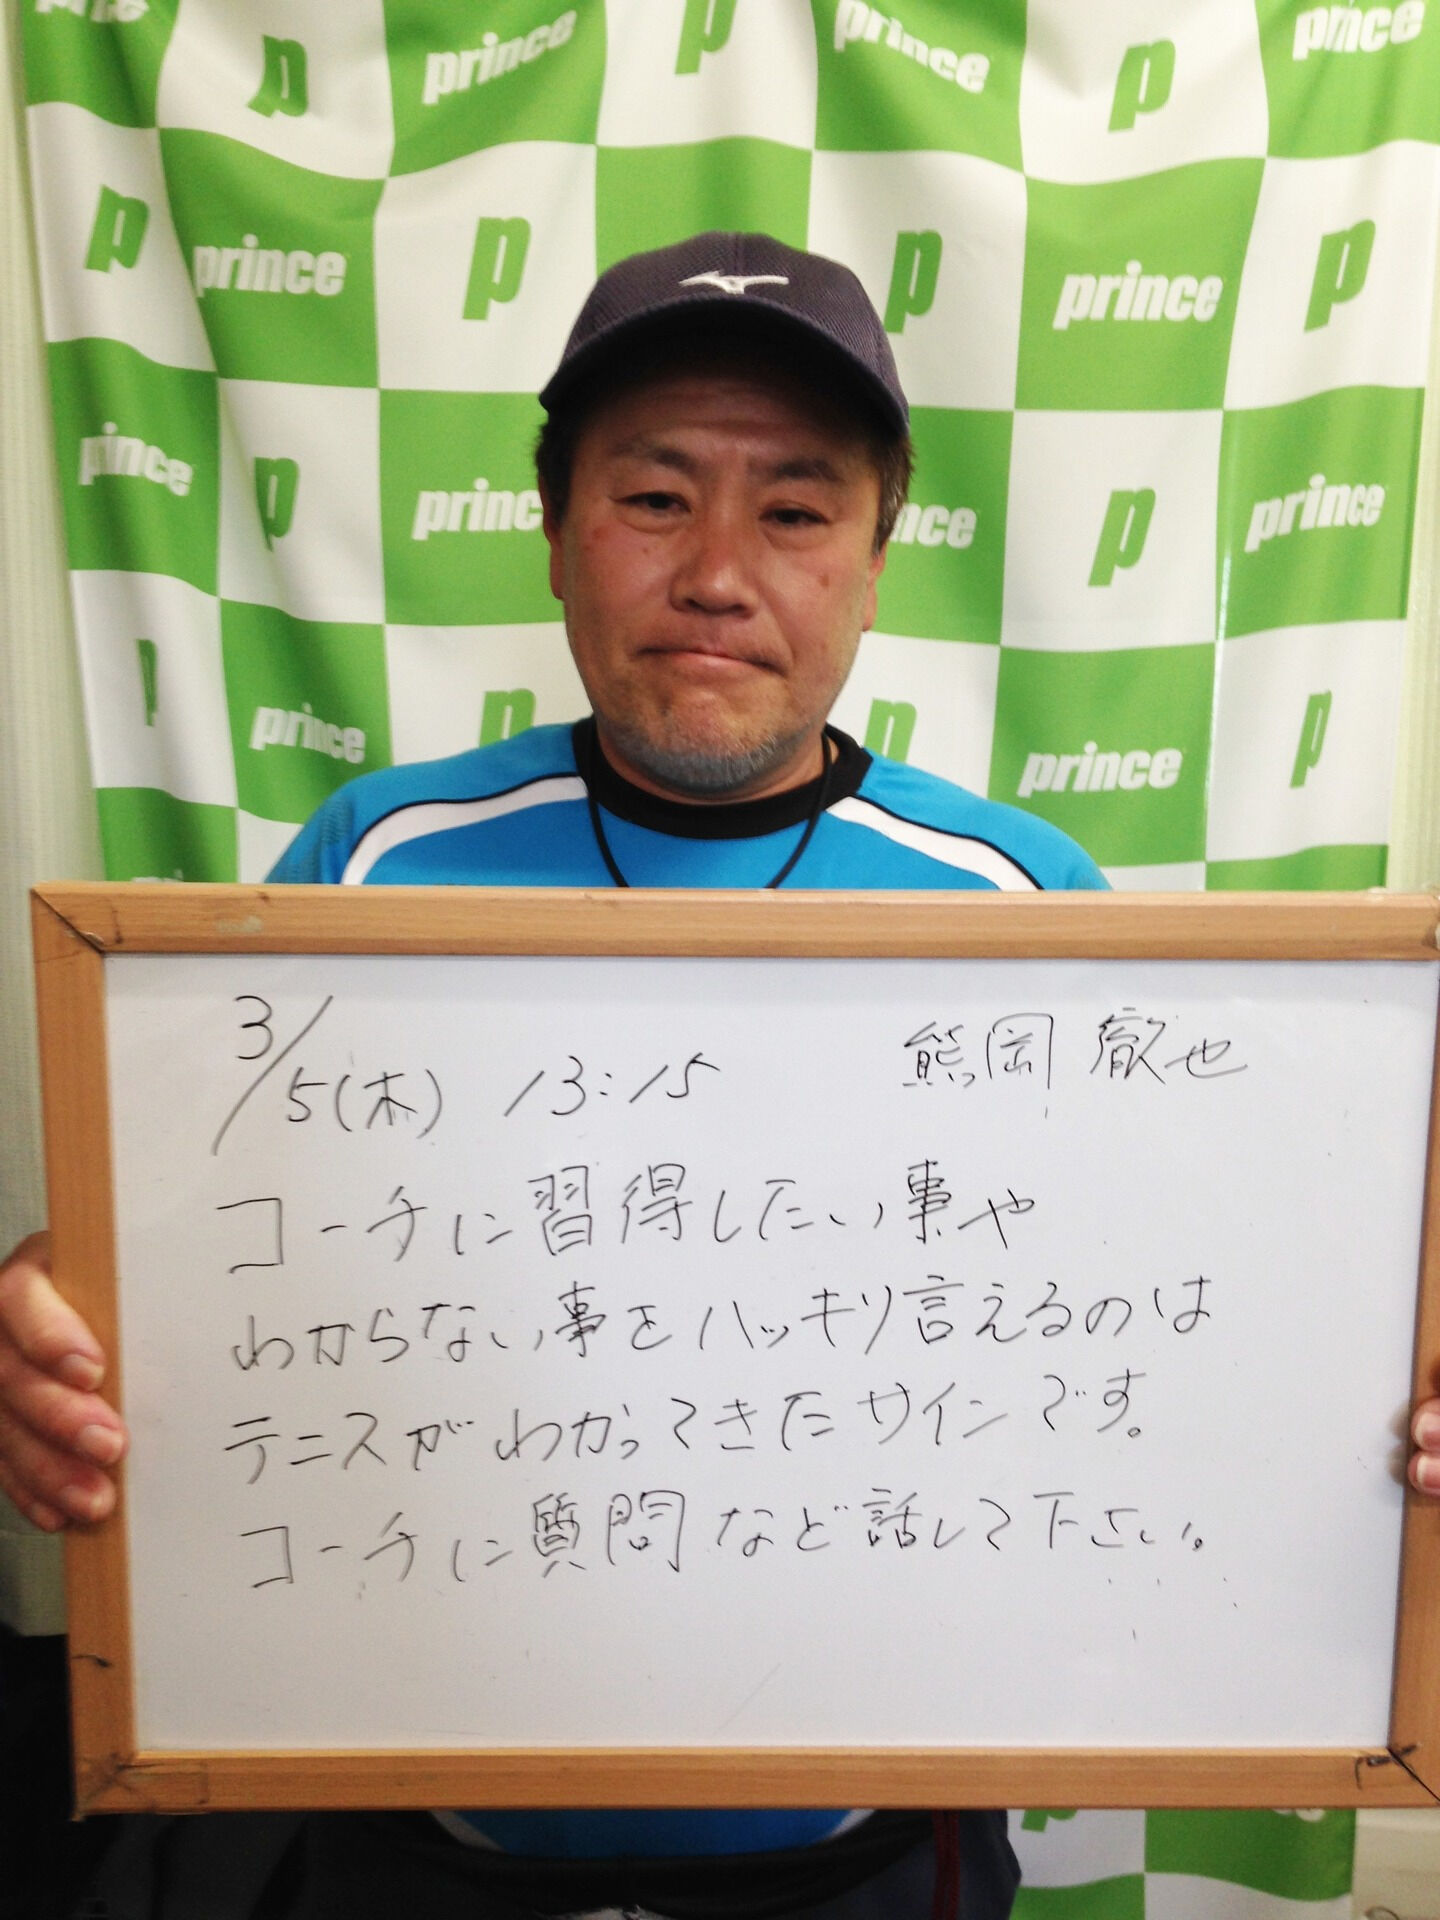 prince
p
prince
p
prince
p
prince
p
prince
p
p
prince
p
prince
p
prince
p
prince
p
prince
p
p
prince
p
prince
p
3/5(木) 13:15 熊岡 徹也
コーチに習得したい事や
わからない事をハッキリ言えるのは
テニスがわかってきたサインです。
コーチに質問など話して下さい。